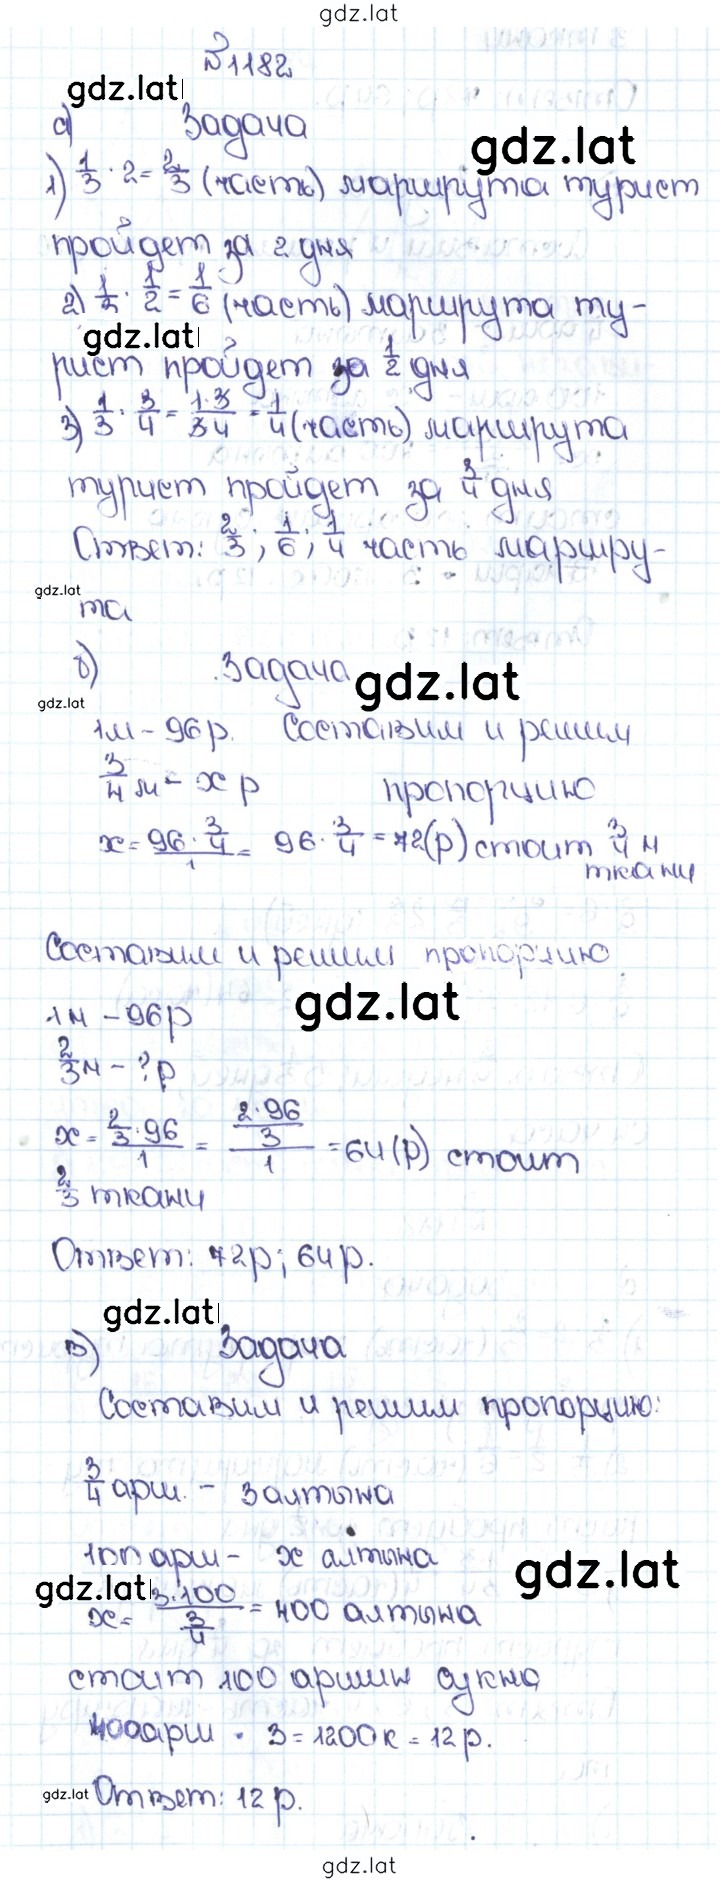 gdz.lat
№1182
gdz.lat
а) Задача
gdz.lat
1) 1/3 · 2 = 2/3 (часть) маршрута турист
пройдет за 2 дня
2) 1/3 · 1/2 = 1/6 (часть) маршрута ту-
gdz.lat
рист пройдет за 1/2 дня
3) 1/3 · 3/4 = 1·3/3·4 = 1/4 (часть) маршрута
турист пройдет за 3/4 дня
Ответ: 2/3; 1/6; 1/4 часть маршру-
gdz.lat
та
б) Задача
gdz.lat
gdz.lat
1м - 96 р. Составим и решим
3/4 м - x р пропорцию
x = 96 · 3/4 / 1 = 96 · 3/4 = 72 (р) стоит 3/4 м
ткани
Составим и решим пропорцию
gdz.lat
1м - 96р
2/3 м - ? р
x = 2/3 · 96 / 1 = 2·96/3 / 1 = 64 (р) стоит
2/3 ткани
Ответ: 72р; 64р.
gdz.lat
в) Задача
Составим и решим пропорцию:
3/4 арш. - 3 алтына
100 арш - x алтына
gdz.lat
gdz.lat
x = 3·100 / 3/4 = 400 алтына
стоит 100 аршин сукна
400 арш · 3 = 1200к = 12 р.
gdz.lat
Ответ: 12 р.
gdz.lat